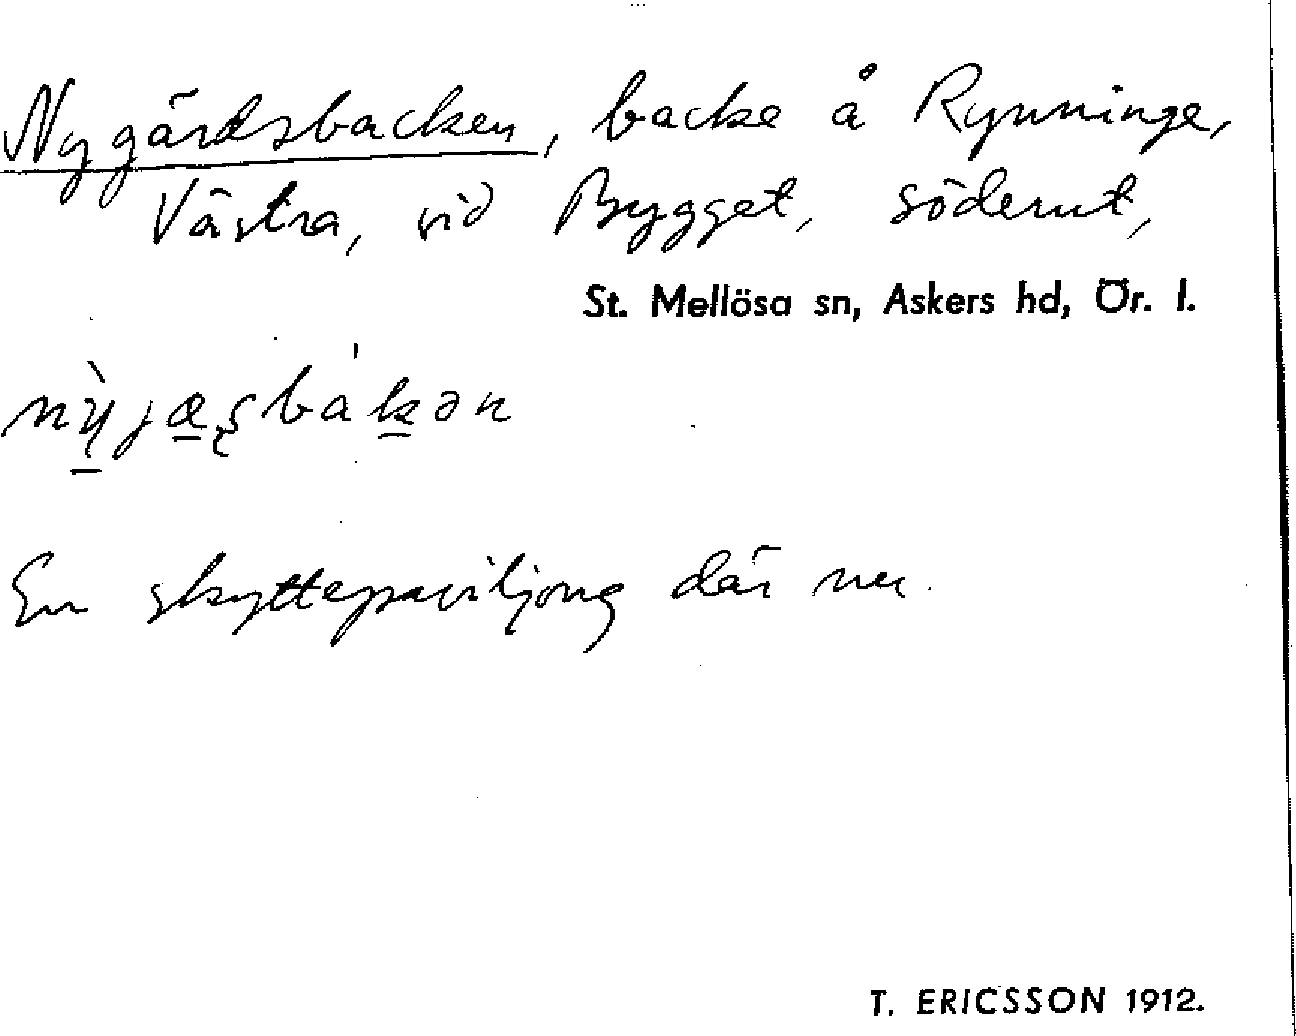 Nygärdsbacken, backe å Rynninge,
Västra, vid Bygget, söderut,
St. Mellösa sn, Askers hd, Ör. l.
nỳjæʂbákən
En skyttepaviljong där nu.
T. ERICSSON 1912.